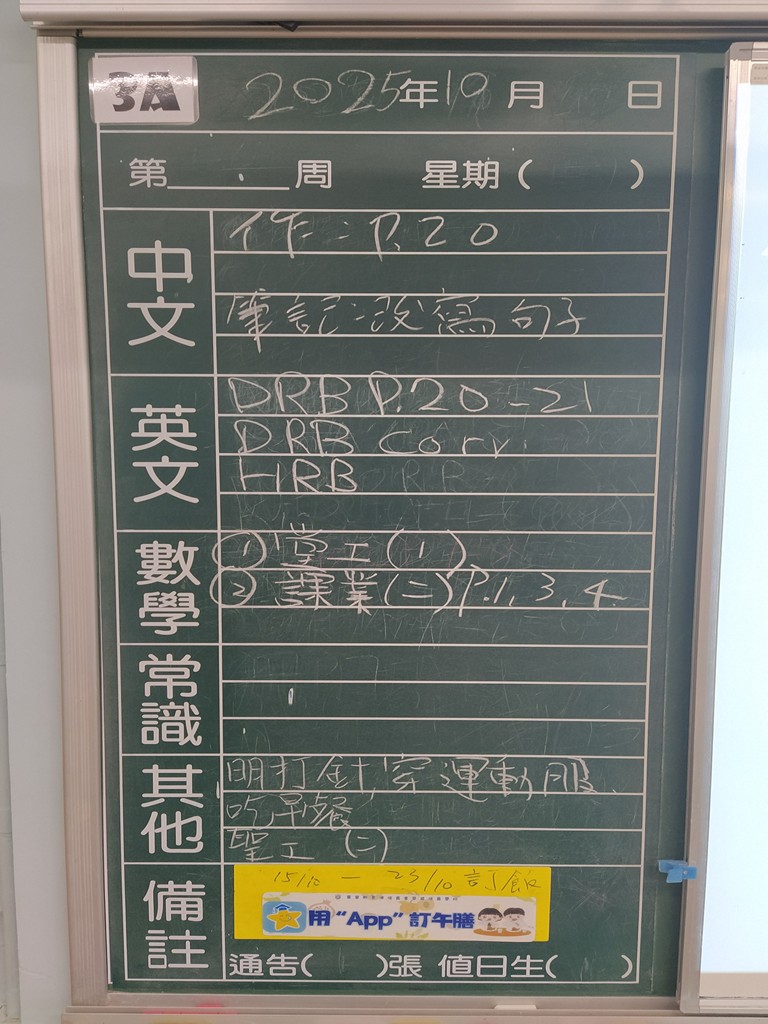 3A
2025年10月 日
第 周 星期( )
中文
作:P.20
筆記:改寫句子
英文
DRB P.20-21
DRB corr.
HRB
數學
①堂工(1)
②課業(二)P.1,3,4.
常識
其他
明打針,穿運動服,
吃早餐
聖工(二)
備註
15/10 — 23/10 訂飯
用“App”訂午膳
通告( )張 值日生( )